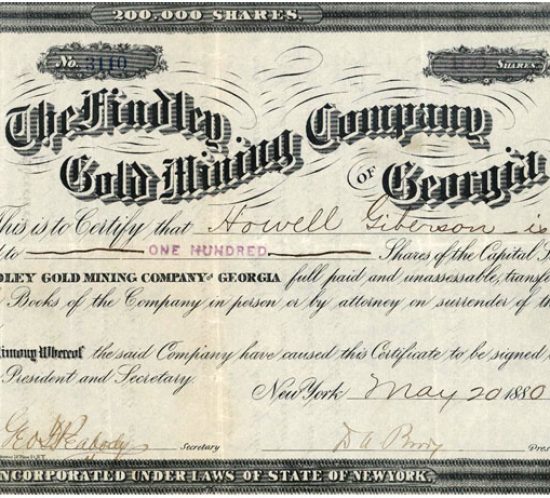 200,000 SHARES.
No. 3110 SHARES
The Findley Company
Gold Mining OF Georgia
This is to Certify that Howell Giberson is
to ONE HUNDRED Shares of the Capital
DLEY GOLD MINING COMPANY OF GEORGIA full paid and unassessable, transfe
Books of the Company in person or by attorney on surrender of th
timony Whereof the said Company have caused this Certificate to be signed
President and Secretary.
New York May 20 1880
Geo H Peabody Secretary Pres
INCORPORATED UNDER LAWS OF STATE OF NEW YORK.